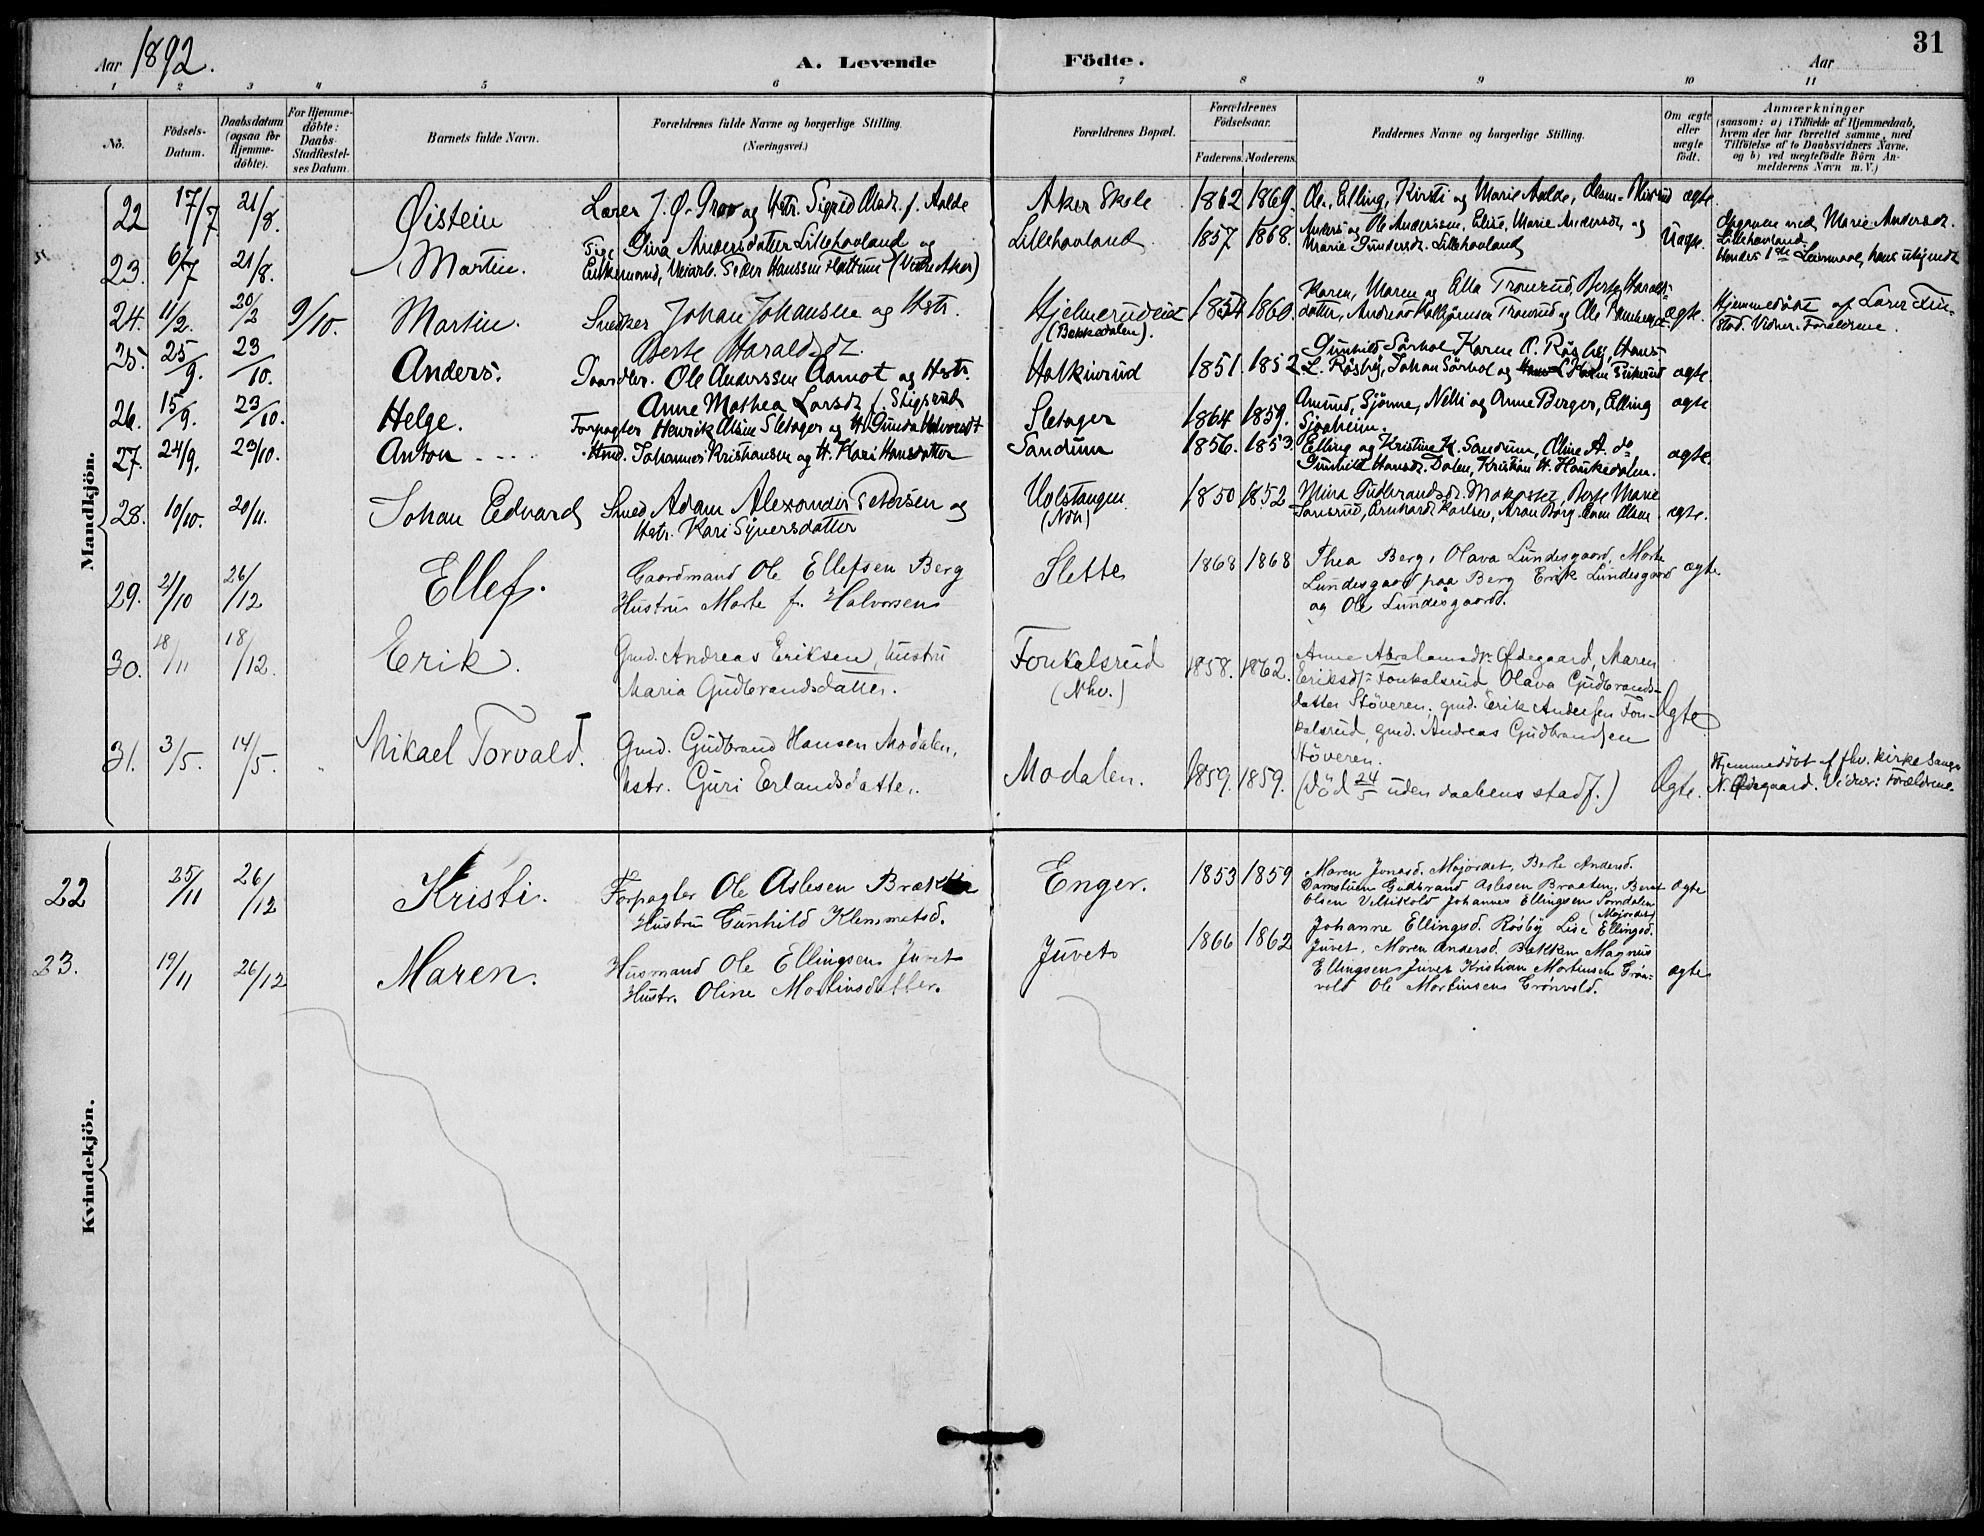 31
Aar 1892.
A. Levende Födte.
Aar
1 2 3 4 5 6 7 8 9 10 11
No.
Födsels-Datum.
Daabsdatum (ogsaa för Hjemmedöbte).
For Hjemmedöbte: Daabs-Stadfæstelses Datum.
Barnets fulde Navn.
Forældrenes fulde Navne og borgerlige Stilling.
(Næringsvei.)
Forældrenes Bopæl.
Forældrenes Födselsaar.
Faderens. Moderens.
Faddernes Navne og borgerlige Stilling.
Om ægte eller uægte födt.
Anmærkninger
(saasom: a) i Tilfælde af Hjemmedaab,
hvem der har forrettet samme, med
Tilföielse af to Daabsvidners Navne,
og b) ved uægtefödte Börn Anmelderens Navn m.V.)
Mandkjön.
22 17/7 21/8. Øistein Lærer J. Ø. Groo og Hstr. Sigrid Olsdr. f. Aalde Aker Skole 1862 1869. Ole, Elling, Kirsti og Marie Aalde, ægte
23. 6/7 21/8. Martin. Pige Gina Andersdatter Lillehovland og
Enkemand, Veiarb. Peder Hanssen Hattrum (Vestre Aker)
Lillehovland 1857 1868. Anders og Ole Anderssen, Elise, Marie Andersdr. og
Marie Gundersdr. Lillehovland Uægte. Opgiven ved Marie Andersdr.
Lillehovland.
Hendes 1ste Leiermaal, hans ubekjendt
24. 11/2. 20/2 9/10. Martin. Snedker Johan Johansen og Hstr.
Berte Haraldsd.
Hjelmerudeiet
(Bakkedalen).
1854 1860. Karen, Maren og Ella Tronrud, Berte Haralds-
datter, Andreas Tronrud og Ole ægte. Hjemmedöbt af Lærer
stad. Vidner: Forældrene.
25. 25/9. 23/10. Anders. Gaardbr. Ole Anderssen Aamot og Hstr.
Anne Mathea Larsdr. f. Stigsrud
Halkinrud 1851. 1852 Gunhild Sörhol Karen O. Røsby, Hans
L. Røsby, Johan Sörhol og ægte.
26. 15/9. 23/10. Helge. Forpagter Henrik Olsen Sletager og H. Gunda Halvorsdt Sletager 1864 1859. Amund, Sjønne, Nelli og Anne Berger, Elling
Sjoaheim. ægte
27. 24/9. 23/10. Anton Hmd. Johannes Kristiansen og H. Kari Hansdatter Sandum 1856. 1853. Elling og Kristine K. Sandum, Oline A. do
Gunhild Hansdr. Dalen, Kristian H. Haukedalen. ægte.
28. 10/10. 20/11. Johan Edvard Smed Adam Alexander Petersen og
Hstr. Kari Syversdatter
Volstangen
(Nöh)
1850 1852 Mina Gudbrandsdr. Berte Marie
Arnhard Karlsen, Aron Borg Even Olsen ægte.
29. 21/10 26/12 Ellef. Gaardmand Ole Ellefsen Berg
Hustru Marte f. Halvorsen
Slette 1868 1868 Thea Berg, Olava Lundesgaard, Marte
Lundesgaard paa Berg Erik Lundesgaard
og Ole Lundesgaard. ægte
30. 18/11 18/12. Erik. Gmd. Andreas Eriksen, hustru
Maria Gudbrandsdatter.
Fonkalsrud
(Nhv.)
1858. 1862. Anne Abrahamsdr. Ødegaard, Maren
Eriksdr. Fonkalsrud Olava Gudbrands-
datter Støveren, gmd. Erik Andersen Fon-
kalsrud, gmd. Andreas Gudbrandsen
Støveren. Ægte
31. 3/5. 14/5. " Mikael Torvald. Gmd. Gudbrand Hansen Modalen,
hstr. Guri Erlandsdatter.
Modalen. 1859. 1859. (Død 24/5 uden daabens stadf.) Ægte. Hjemmedöbt af fhv. kirkesanger
N. Ødegaard. Vidner: Forældrene.
Kvindekjön.
22 25/11 26/12 Kristi. Forpagter Ole Aslesen
Hustru Gunhild Klemmetsd.
Enger. 1853 1859 Maren Jonasd. Mojordet, Berte Andersd.
Damstuen Gudbrand Aslesen Braaten, Bernt
Olsen Veltikold Johannes Ellingsen Tomdalen
(Mojordet) ægte
23. 19/11 26/12 Maren. Husmand Ole Ellingsen Juvet
Hustr. Oline Mortinsdatter.
Juvet 1866 1862 Johanne Ellingsd. Røsby Lise Ellingsd.
Juvet, Maren Andersd. Bakken Magnus
Ellingsen Juvet Kristian Mortinsen Grøn-
vold Ole Mortinsen Grønvold. ægte